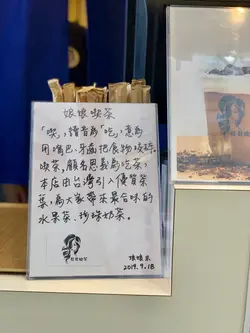 娘娘喫茶
「喫」,讀音為「吃」,意為
用嘴巴、牙齒把食物咬碎。
喫茶,顧名思義為吃茶,
本店由台灣引入優質茶
葉,為大家帶來最合味的
水果茶、珍珠奶茶。
娘娘示
2019.9.18
娘娘喫茶